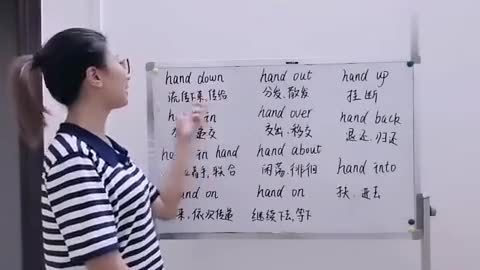 hand down hand out hand up
流传下来,传给 分发,散发 挂断
in hand over hand back
交 交出,移交 退还,归还
in hand hand about hand into
手,联合 闲荡,徘徊 扶,进去
hand on hand on
来,依次传递 继续下去,等下